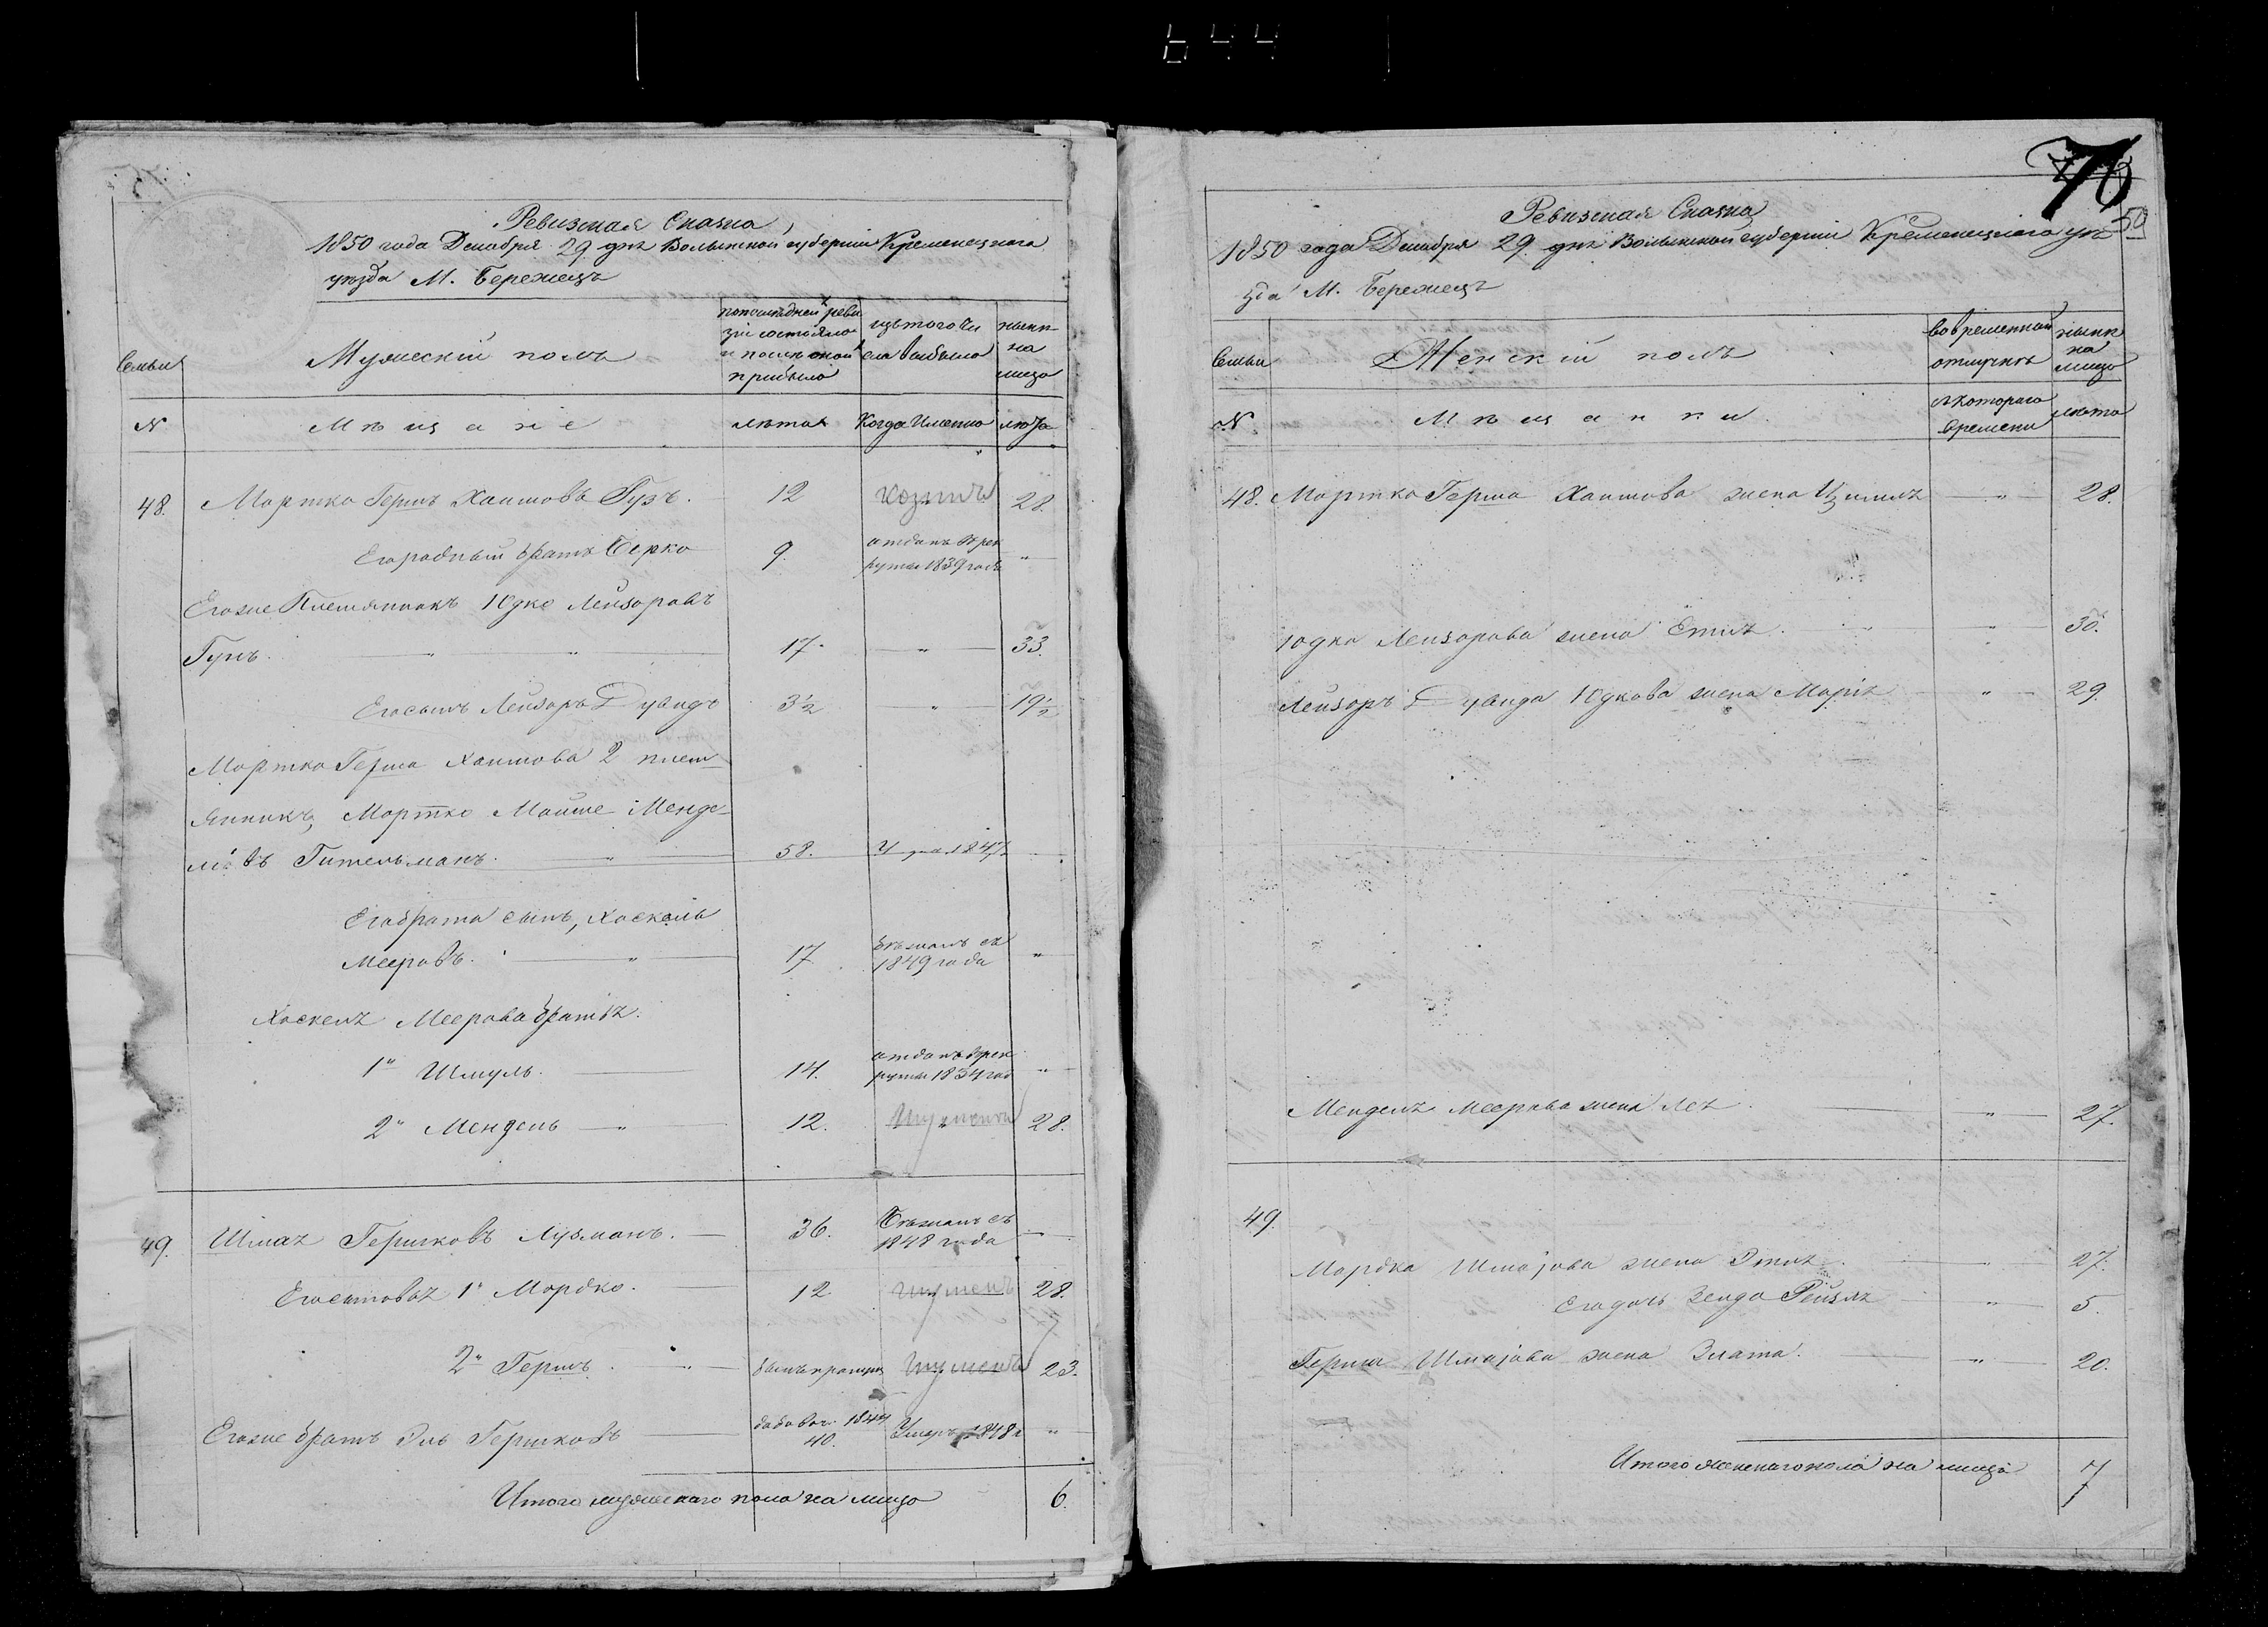 644
Ревизская Сказка
1850 года Декабря 29 дня Волынской губернии Кременецкаго
уѣзда М. Бережецъ
Семьи
Мужескій полъ
по последней реви
зіи состояло
и послѣ оной
прибыло
изъ того чи
сла выбыло
нынѣ
на
лицо
№
Мѣщане
лѣта
Когда Именно
лѣта
48. Мортко Гершъ Хаимовъ Гузъ. 12 28.
Его родный братъ Берко 9. отданъ въ рек
руты 1839 года "
Егоже Племянникъ Юдко Лейзоровъ
17. " 33.
Егосынъ Лейзоръ Дувидъ 3½ " 19½
Мортко Герша Хаимова 2 плем
янникъ, Мортко Мойше Менде
левъ Гительманъ. 58. 1847
Егобрата сынъ, Хаскель
Мееровъ. " 17 бѣжалъ съ
1849 года "
Хаскеля Меерова братья.
1й Шмуль. 14. отданъ в рек
руты 1834 год "
2й Мендель " 12. 28.
49. Шмая Гершковъ Лузманъ. 36. Бѣжалъ съ
1848 года
Егосыновья 1й Мордко. 12 28.
2й Гершъ. 23.
Егоже братъ Эль Гершковъ 1844
40. Умеръ 1848 "
Итого мужескаго пола на лицо 6.
70
59
Ревизская Сказка
1850 года Декабря 29 дня Волынской губерніи Кременецкаго уѣ
зда М. Бережецъ
Семьи
Женскій полъ
во временной
отлучкѣ
нынѣ
на
лицо
№
Мѣщанки
съ котораго
времени
лѣта
48. Мортка Герша Хаимова жена Ципля " 28.
Юдка Лейзорова жена Етля. " 30.
Лейзоръ Дувида Юдкова жена Марія " 29.
Менделя Меерова жена Лея " 27.
49.
Мордка Шмајова жена Этля " 27.
Егодочь Зенда Рейзля " 5.
Герша Шмајова жена Злата. " 20.
Итого женскаго пола на лицо 7